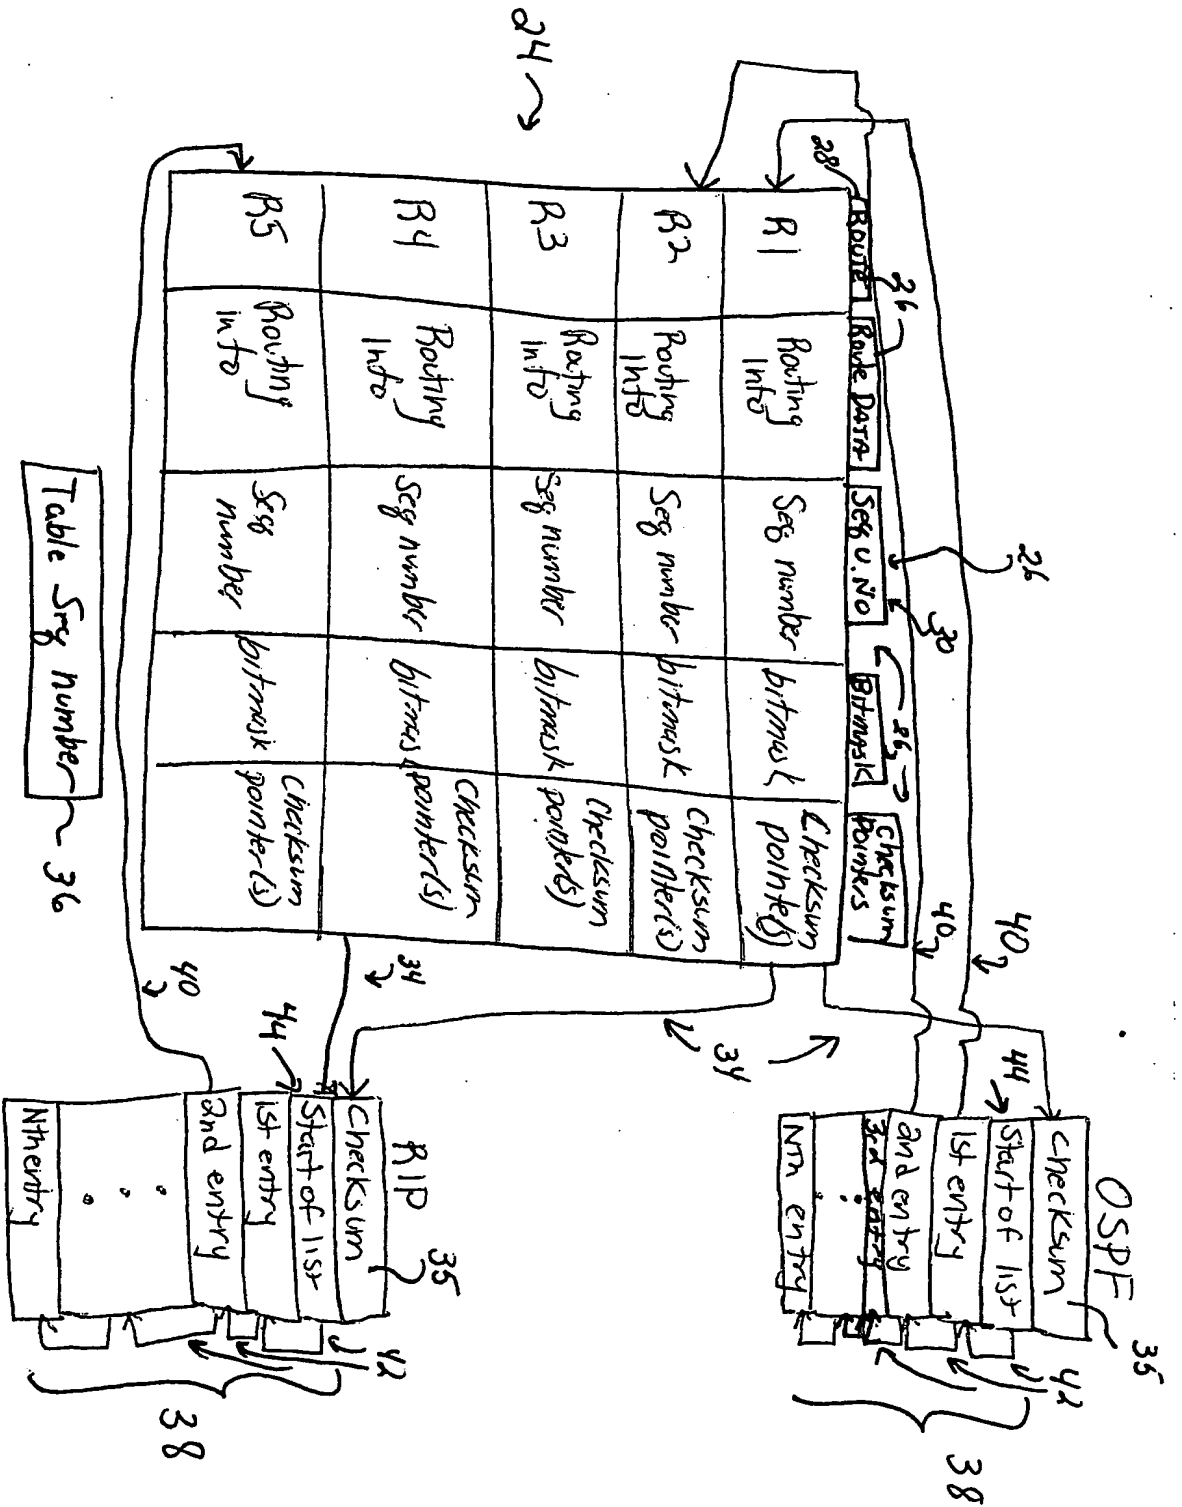 24
28
26
26
30
26
40
40
ROUTE
Route DATA
Seq U. No
Bitmask
Checksum
pointers
R1
Routing
Info
Seq number
bitmask
Checksum
pointer(s)
R2
Routing
Info
Seq number
bitmask
Checksum
pointer(s)
R3
Routing
info
Seq number
bitmask
Checksum
pointer(s)
R4
Routing
Info
Seq number
bitmask
Checksum
pointer(s)
R5
Routing
info
Seq
number
bitmask
Checksum
pointer(s)
Table Seq number
36
34
34
40
OSPF
44
Checksum
35
Start of list
1st entry
2nd entry
3rd entry
Nth entry
42
38
RIP
44
Checksum
35
Start of list
1st entry
2nd entry
Nth entry
42
38